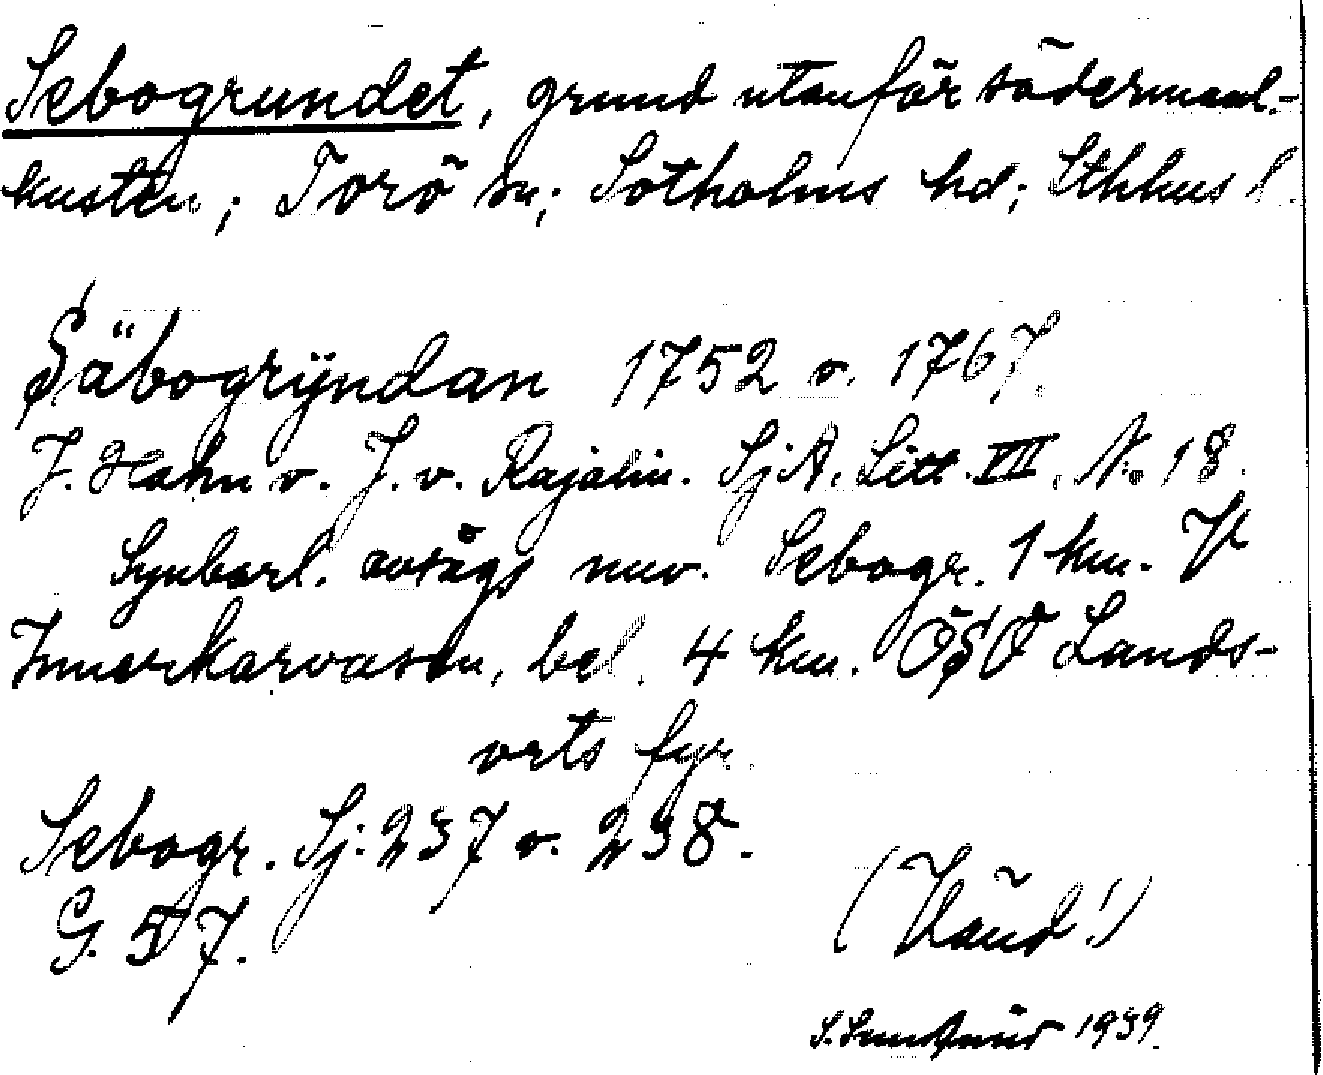 Sebogrundet, grund utanför södermanl.-
kusten; Torö sn; Sotholms hd; Sthlms l.
Säbogrÿndan 1752 o. 1767.
J. Hahn o. J. v. Rajalin. SjA. Litt. VII. No 18.
Synbarl. avsägs nuv. Sebogr. 1 km. V
Innerkarvasen, bel. 4 km. ÖSÖ Lands-
orts fyr.
Sebogr. Sj: 237 o. 238.
G. 57.
(Vänd!)
1939.